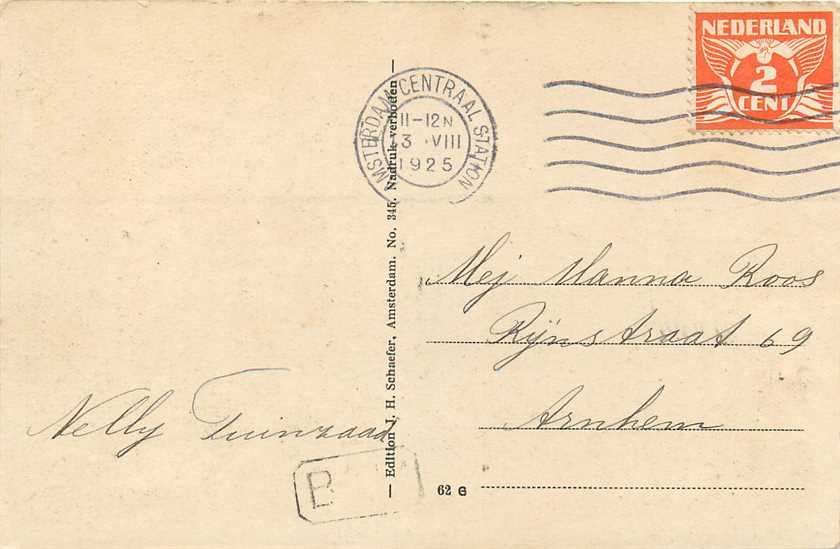 NEDERLAND
2
CENT
AMSTERDAM CENTRAAL STATION
11-12N
3 VIII
1925
Mej Manna Roos
Rijnstraat 69
Arnhem
Nelly Tuinzaad
— Edition J. H. Schaefer, Amsterdam. No. 345. Nadruk verboden —
B
62 G